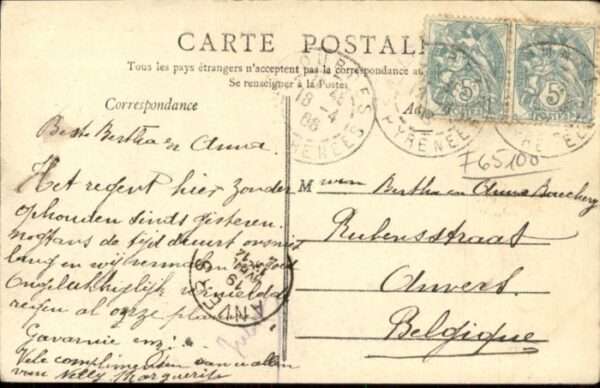 CARTE POSTALE
Tous les pays étrangers n'acceptent pas la correspondance au
Se renseigner à la Postes
Correspondance
Beste Bertha en Anna.
Het regent hier zonder
ophouden sinds gisteren.
nogtans de tijd duurt ons niet
lang en wij vermaken ons goed
Ongelukkiglijk vernielde
regen al onze plannen
Gavarnie enz!..
Vele complimenten aan u allen
van Nelly Marguerite
M van Bertha en Anna
Rubensstraat
Anvers
Belgique
765100
5c
5c
18-4
PYRENEES
ANVERS